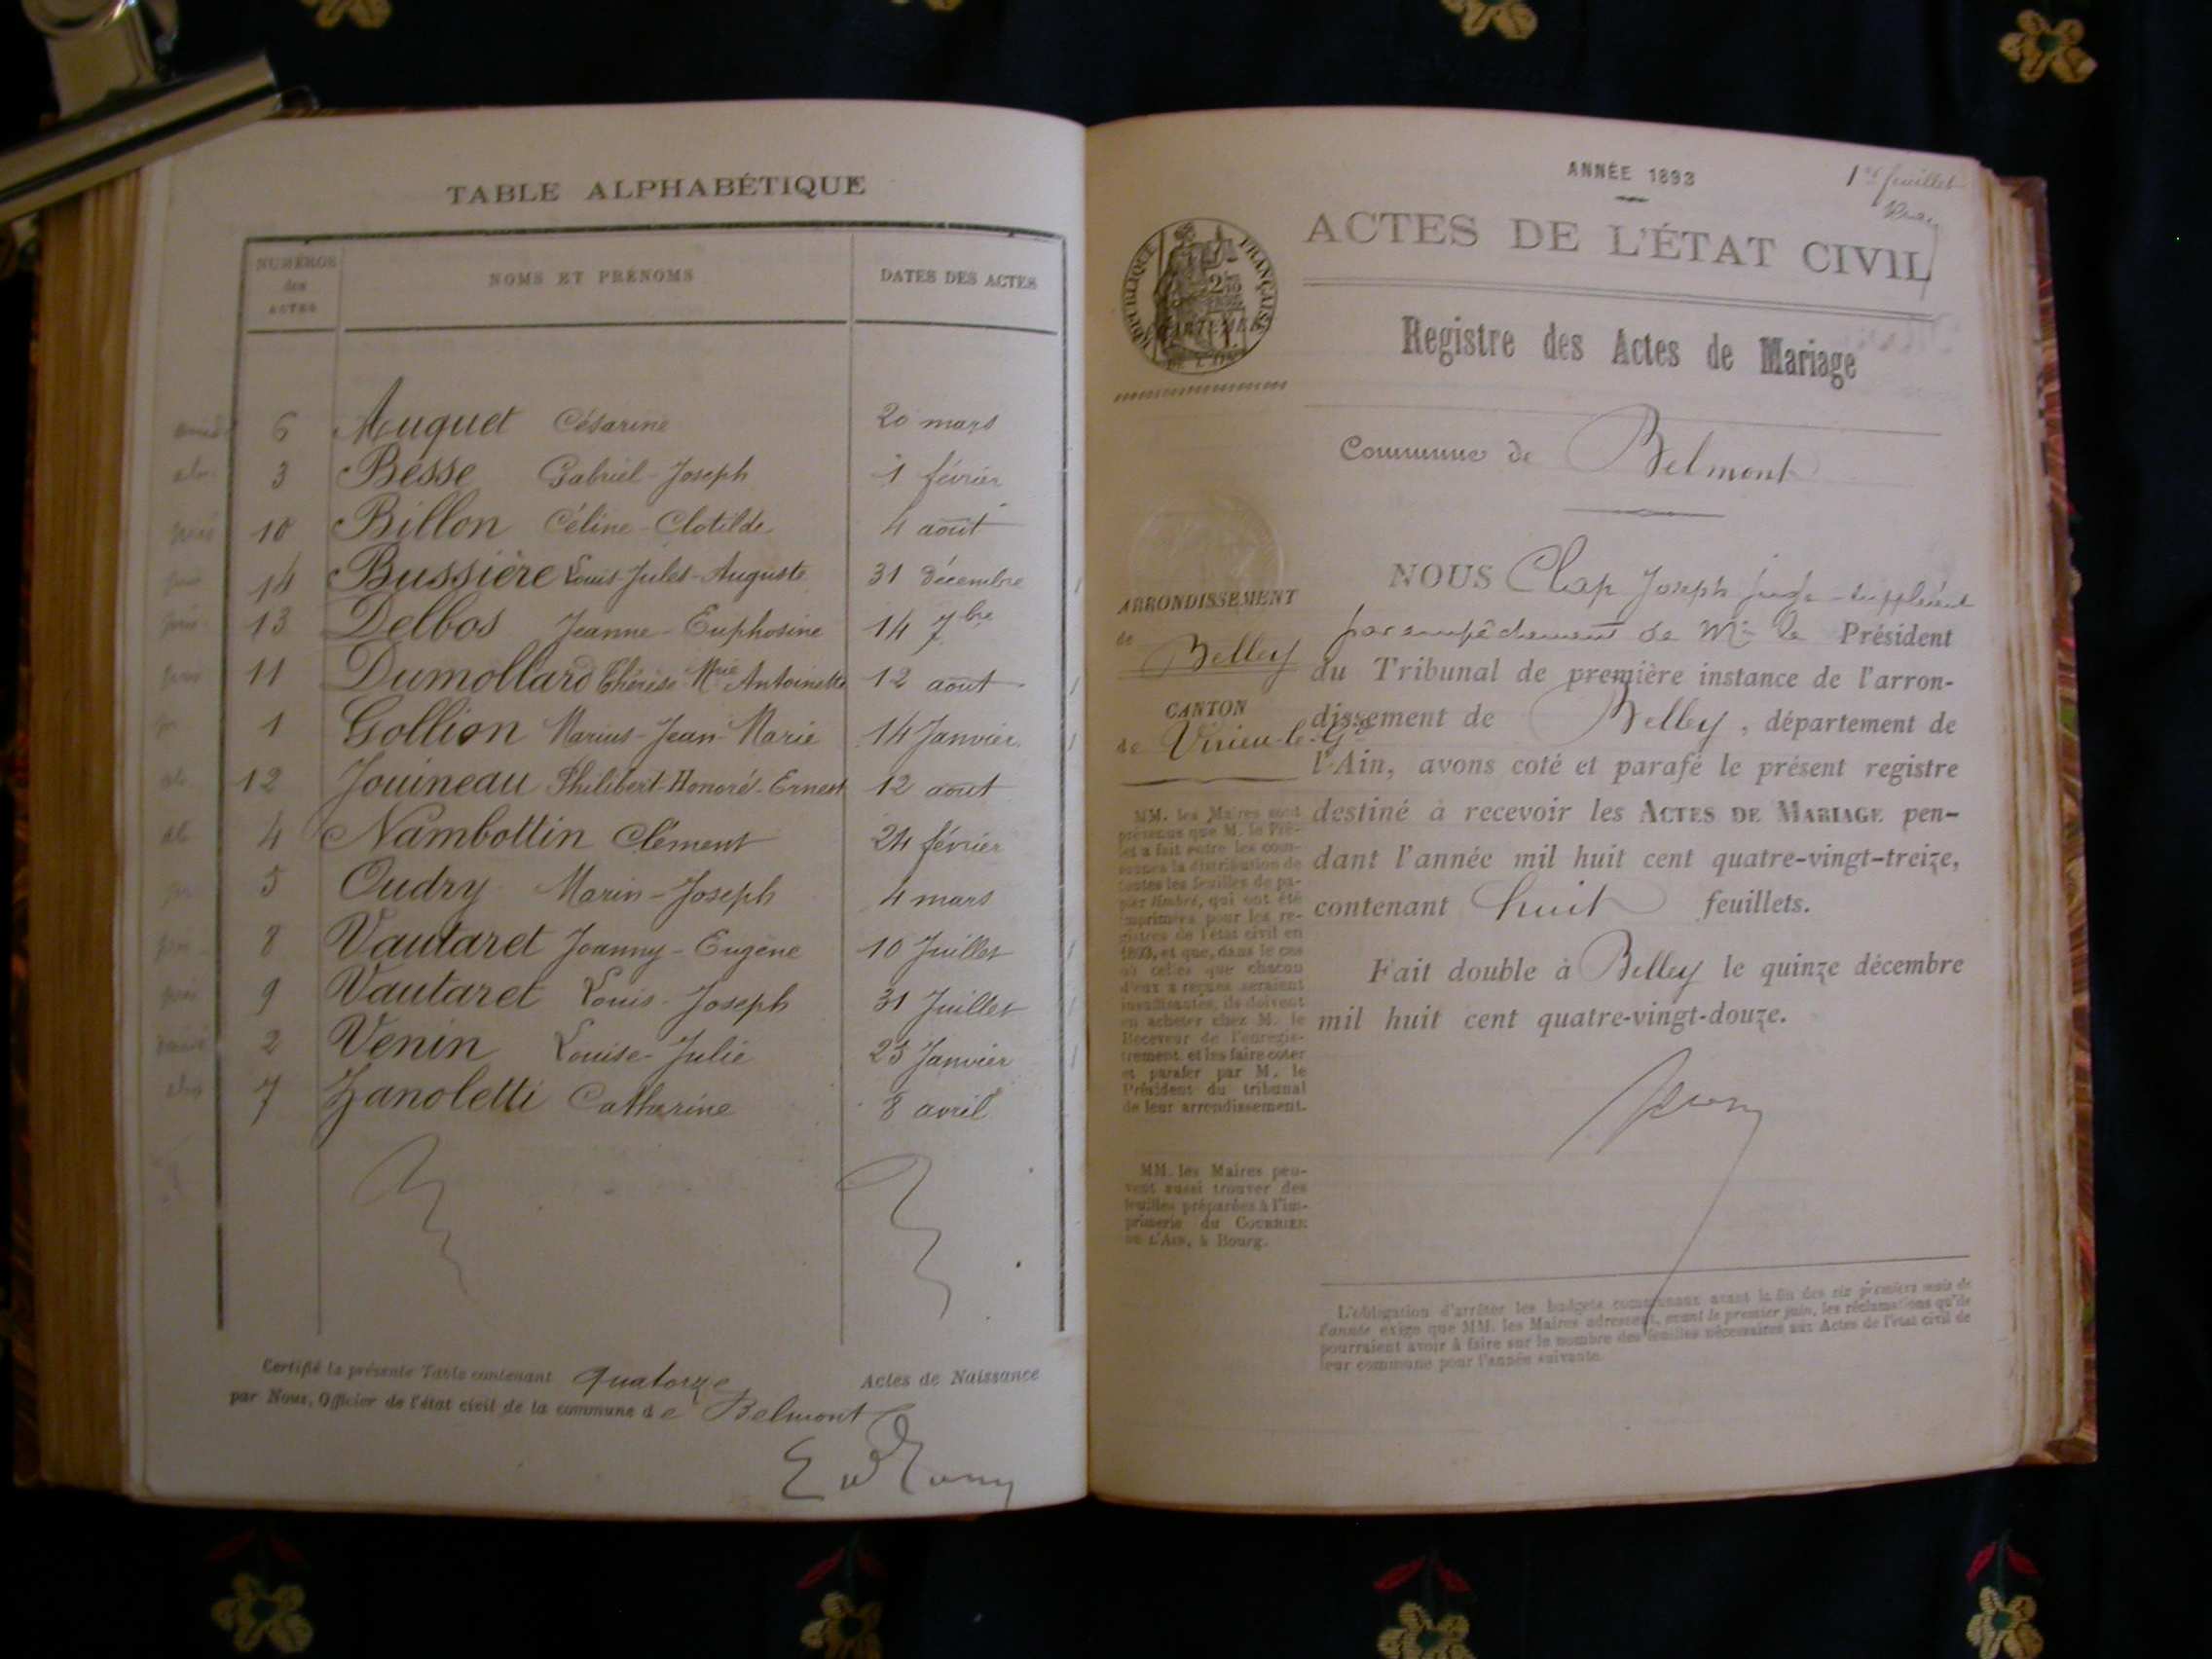 TABLE ALPHABÉTIQUE
NUMÉROS des ACTES NOMS ET PRÉNOMS DATES DES ACTES
6 Auquet Césarine 20 mars
3 Besse Gabriel-Joseph 1 février
10 Billon Céline-Clotilde 4 août
14 Bussière Louis-Jules-Auguste 31 décembre
13 Delbos Jeanne-Euphosine 14 7bre
11 Dumollard Thérèse Mrie Antoinette 12 août
1 Gollion Marius-Jean-Marie 14 Janvier
12 Jouineau Philibert-Honoré-Ernest 12 août
4 Nambottin Clément 24 février
5 Oudry Marin-Joseph 4 mars
8 Vautaret Joanny-Eugène 10 Juillet
9 Vautaret Louis-Joseph 31 Juillet
2 Venin Louise-Julie 23 Janvier
7 Zanoletti Catherine 8 avril
Certifié la présente Table contenant quatorze Actes de Naissance
par Nous, Officier de l'état civil de la commune de Belmont
ANNÉE 1893
1er feuillet
ACTES DE L'ÉTAT CIVIL
RÉPUBLIQUE FRANÇAISE
Registre des Actes de Mariage
Commune de Belmont
ARRONDISSEMENT
de Belley
CANTON
de Virieu-le-Gd
NOUS Clap Joseph juge-suppléant
par empêchement de Mr le Président
du Tribunal de première instance de l'arron-
dissement de Belley, département de
l'Ain, avons coté et parafé le présent registre
destiné à recevoir les ACTES DE MARIAGE pen-
dant l'année mil huit cent quatre-vingt-treize,
contenant huit feuillets.
Fait double à Belley le quinze décembre
mil huit cent quatre-vingt-douze.
MM. les Maires sont
prévenus que M. le Pré-
fet a fait entre les com-
munes la distribution de
toutes les feuilles de pa-
pier timbré, qui ont été
imprimées pour les re-
gistres de l'état civil en
1893, et que, dans le cas
où celles que chacun
d'eux a reçues seraient
insuffisantes, ils doivent
en acheter chez M. le
Receveur de l'enregis-
trement et les faire coter
et parafer par M. le
Président du tribunal
de leur arrondissement.
MM. les Maires peu-
vent aussi trouver des
feuilles préparées à l'im-
primerie du COURRIER
DE L'AIN, à Bourg.
L'obligation d'arrêter les budgets communaux avant la fin des six premiers mois de
l'année exige que MM. les Maires adressent, avant le premier juin, les réclamations qu'ils
pourraient avoir à faire sur le nombre des feuilles nécessaires aux Actes de l'état civil de
leur commune pour l'année suivante.